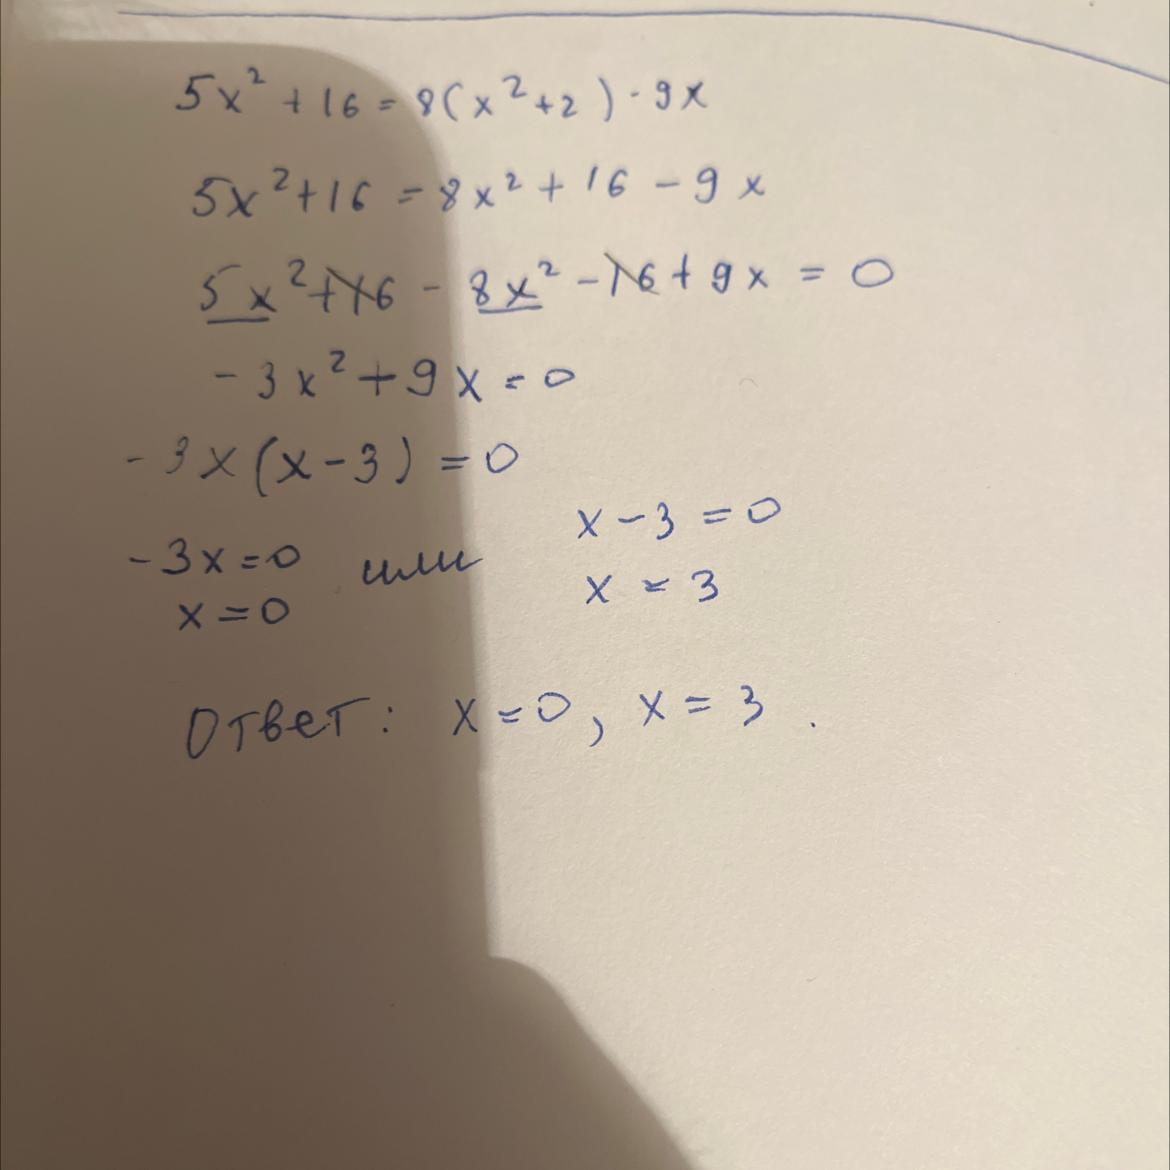 5x² + 16 = 8(x² + 2) - 9x
5x² + 16 = 8x² + 16 - 9x
5x² + 16 - 8x² - 16 + 9x = 0
-3x² + 9x = 0
-3x(x - 3) = 0
-3x = 0 или x - 3 = 0
x = 0 x = 3
Ответ: x = 0, x = 3.